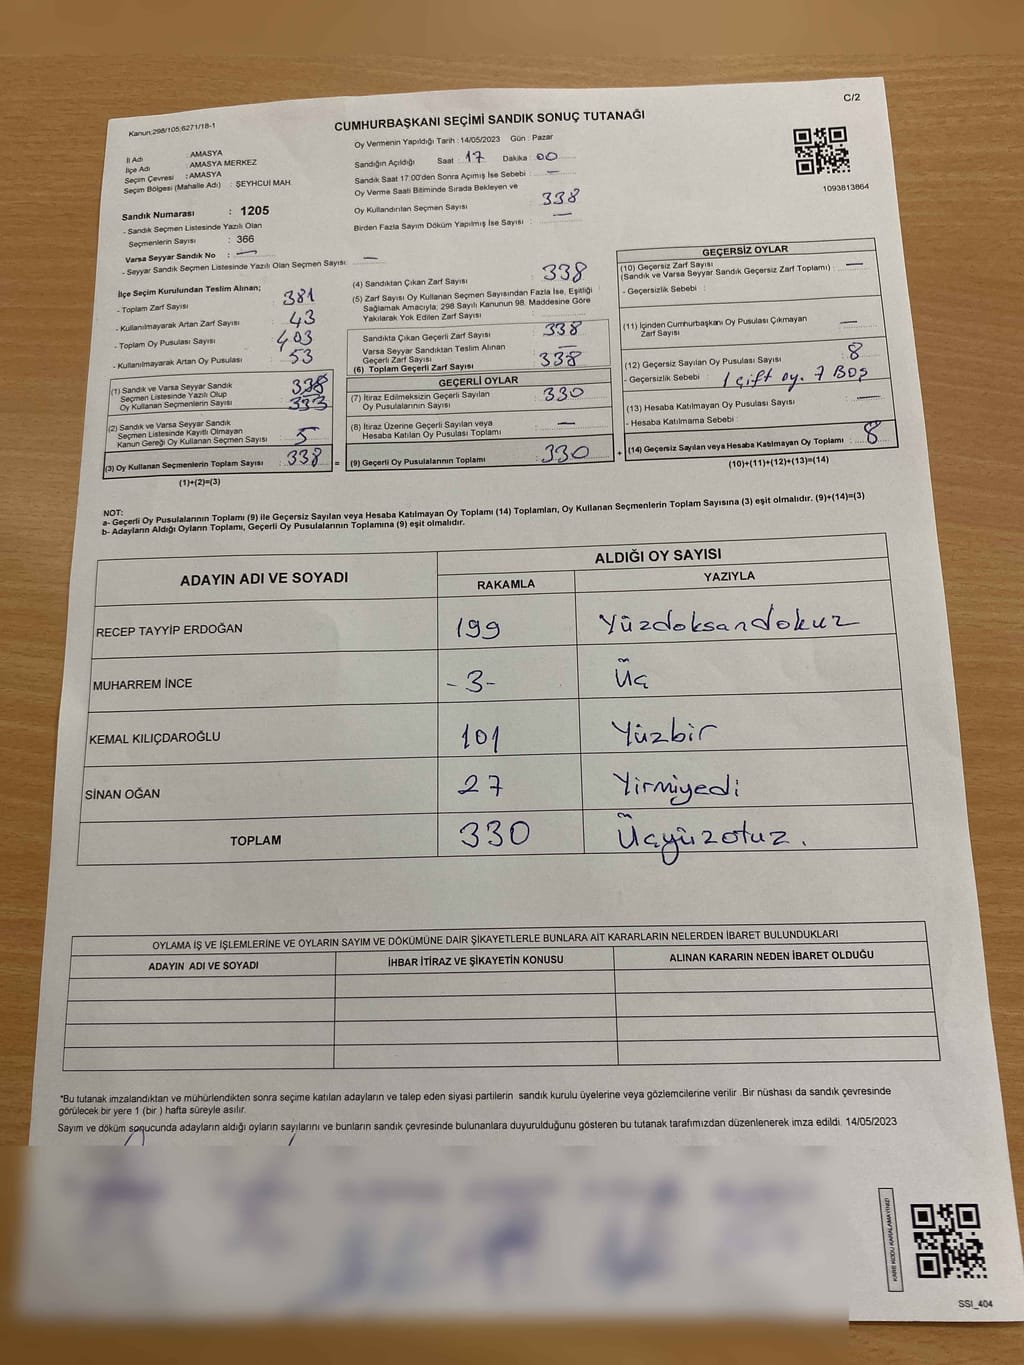 C/2
Kanun:298/105;6271/18-1
CUMHURBAŞKANI SEÇİMİ SANDIK SONUÇ TUTANAĞI
İl Adı : AMASYA
İlçe Adı : AMASYA MERKEZ
Seçim Çevresi : AMASYA
Seçim Bölgesi (Mahalle Adı) : ŞEYHCUİ MAH.
Sandık Numarası : 1205
- Sandık Seçmen Listesinde Yazılı Olan
Seçmenlerin Sayısı : 366
Varsa Seyyar Sandık No : —
- Seyyar Sandık Seçmen Listesinde Yazılı Olan Seçmen Sayısı: —
Oy Vermenin Yapıldığı Tarih : 14/05/2023 Gün : Pazar
Sandığın Açıldığı Saat : 17 Dakika : 00
Sandık Saat 17:00'den Sonra Açımış İse Sebebi : —
Oy Verme Saati Bitiminde Sırada Bekleyen ve
Oy Kullandırılan Seçmen Sayısı : 338
Birden Fazla Sayım Döküm Yapılmış İse Sayısı : —
1093813864
İlçe Seçim Kurulundan Teslim Alınan;
- Toplam Zarf Sayısı : 381
- Kullanılmayarak Artan Zarf Sayısı : 43
- Toplam Oy Pusulası Sayısı : 403
- Kullanılmayarak Artan Oy Pusulası : 53
(1) Sandık ve Varsa Seyyar Sandık
Seçmen Listesinde Yazılı Olup
Oy Kullanan Seçmenlerin Sayısı : 338 333
(2) Sandık ve Varsa Seyyar Sandık
Seçmen Listesinde Kayıtlı Olmayan
Kanun Gereği Oy Kullanan Seçmen Sayısı : 5
(3) Oy Kullanan Seçmenlerin Toplam Sayısı : 338 =
(1)+(2)=(3)
(4) Sandıktan Çıkan Zarf Sayısı : 338
(5) Zarf Sayısı Oy Kullanan Seçmen Sayısından Fazla İse, Eşitliği
Sağlamak Amacıyla; 298 Sayılı Kanunun 98. Maddesine Göre
Yakılarak Yok Edilen Zarf Sayısı :
Sandıkta Çıkan Geçerli Zarf Sayısı : 338
Varsa Seyyar Sandıktan Teslim Alınan
Geçerli Zarf Sayısı : —
(6) Toplam Geçerli Zarf Sayısı : 338
GEÇERLİ OYLAR
(7) İtiraz Edilmeksizin Geçerli Sayılan
Oy Pusulalarının Sayısı : 330
(8) İtiraz Üzerine Geçerli Sayılan veya
Hesaba Katılan Oy Pusulası Toplamı : —
(9) Geçerli Oy Pusulalarının Toplamı : 330 +
GEÇERSİZ OYLAR
(10) Geçersiz Zarf Sayısı : —
(Sandık ve Varsa Seyyar Sandık Geçersiz Zarf Toplamı)
- Geçersizlik Sebebi :
(11) İçinden Cumhurbaşkanı Oy Pusulası Çıkmayan
Zarf Sayısı : —
(12) Geçersiz Sayılan Oy Pusulası Sayısı : 8
- Geçersizlik Sebebi : 1 çift oy. 7 BOŞ
(13) Hesaba Katılmayan Oy Pusulası Sayısı : —
- Hesaba Katılmama Sebebi :
(14) Geçersiz Sayılan veya Hesaba Katılmayan Oy Toplamı : 8
(10)+(11)+(12)+(13)=(14)
NOT:
a- Geçerli Oy Pusulalarının Toplamı (9) ile Geçersiz Sayılan veya Hesaba Katılmayan Oy Toplamı (14) Toplamları, Oy Kullanan Seçmenlerin Toplam Sayısına (3) eşit olmalıdır. (9)+(14)=(3)
b- Adayların Aldığı Oyların Toplamı, Geçerli Oy Pusulalarının Toplamına (9) eşit olmalıdır.
ADAYIN ADI VE SOYADI ALDIĞI OY SAYISI
RAKAMLA YAZIYLA
RECEP TAYYİP ERDOĞAN 199 Yüzdoksandokuz
MUHARREM İNCE -3- Üç
KEMAL KILIÇDAROĞLU 101 Yüzbir
SİNAN OĞAN 27 Yirmiyedi
TOPLAM 330 Üçyüzotuz.
OYLAMA İŞ VE İŞLEMLERİNE VE OYLARIN SAYIM VE DÖKÜMÜNE DAİR ŞİKAYETLERLE BUNLARA AİT KARARLARIN NELERDEN İBARET BULUNDUKLARI
ADAYIN ADI VE SOYADI İHBAR İTİRAZ VE ŞİKAYETİN KONUSU ALINAN KARARIN NEDEN İBARET OLDUĞU
*Bu tutanak imzalandıktan ve mühürlendikten sonra seçime katılan adayların ve talep eden siyasi partilerin sandık kurulu üyelerine veya gözlemcilerine verilir. Bir nüshası da sandık çevresinde
görülecek bir yere 1 (bir ) hafta süreyle asılır.
Sayım ve döküm sonucunda adayların aldığı oyların sayılarını ve bunların sandık çevresinde bulunanlara duyurulduğunu gösteren bu tutanak tarafımızdan düzenlenerek imza edildi. 14/05/2023
KARE KODU KARALAMAYINIZ!
SSI_404